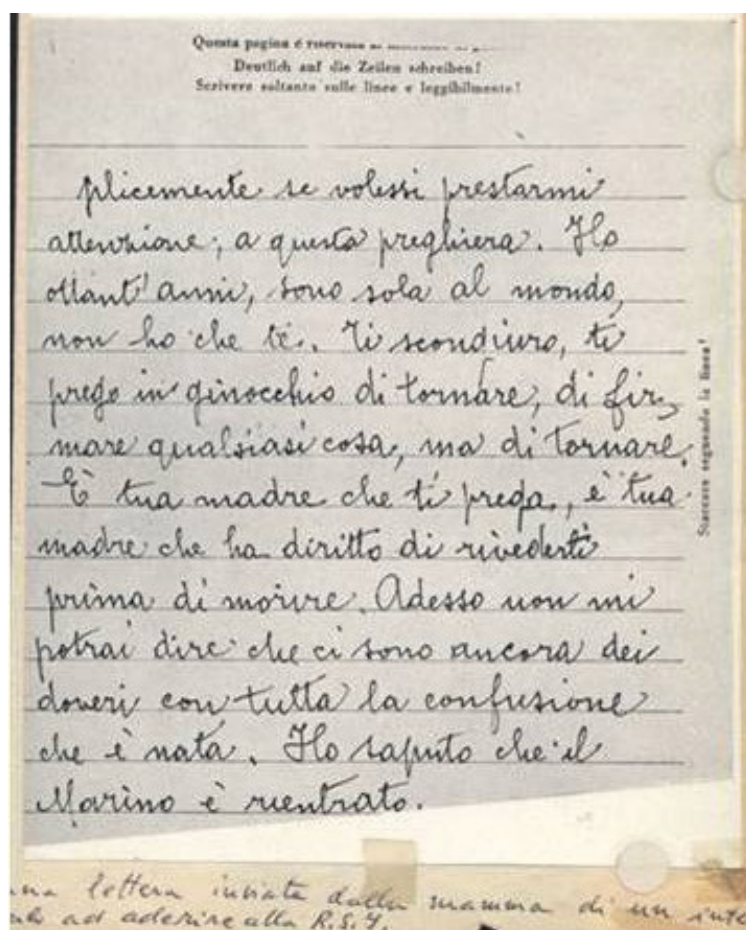 Questa pagina è riservata
Deutlich auf die Zeilen schreiben!
Scrivere soltanto sulle linee e leggibilmente!
plicemente se volessi prestarmi
attenzione, a questa preghiera. Ho
ottant'anni, sono sola al mondo,
non ho che te. Ti scondiuro, ti
prego in ginocchio di tornare, di fir,
mare qualsiasi cosa, ma di tornare.
È tua madre che ti prega, è tua
madre che ha diritto di rivederti
prima di morire. Adesso non mi
potrai dire che ci sono ancora dei
doveri con tutta la confusione
che è nata. Ho saputo che il
Marino è rientrato.
Staccare seguendo la linea!
una lettera inviata dalla mamma di un inte
ad aderire alla R.S.I.